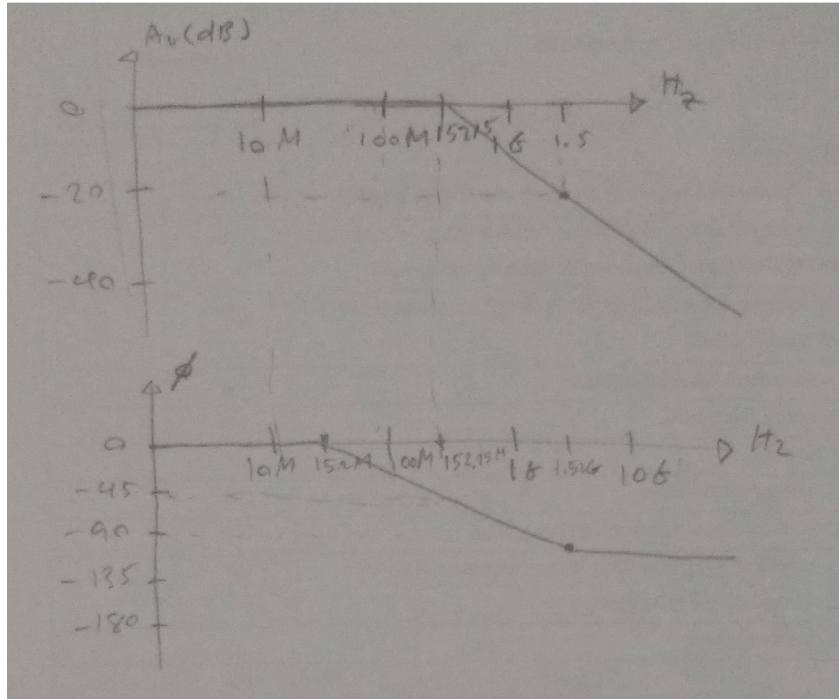 Av(dB)
0
Hz
10 M
100M
152.15
1 G
1.5
-20
-40
ø
0
Hz
10M
15.2M
100M
152,15M
1G
1.52G
10 G
-45
-90
-135
-180